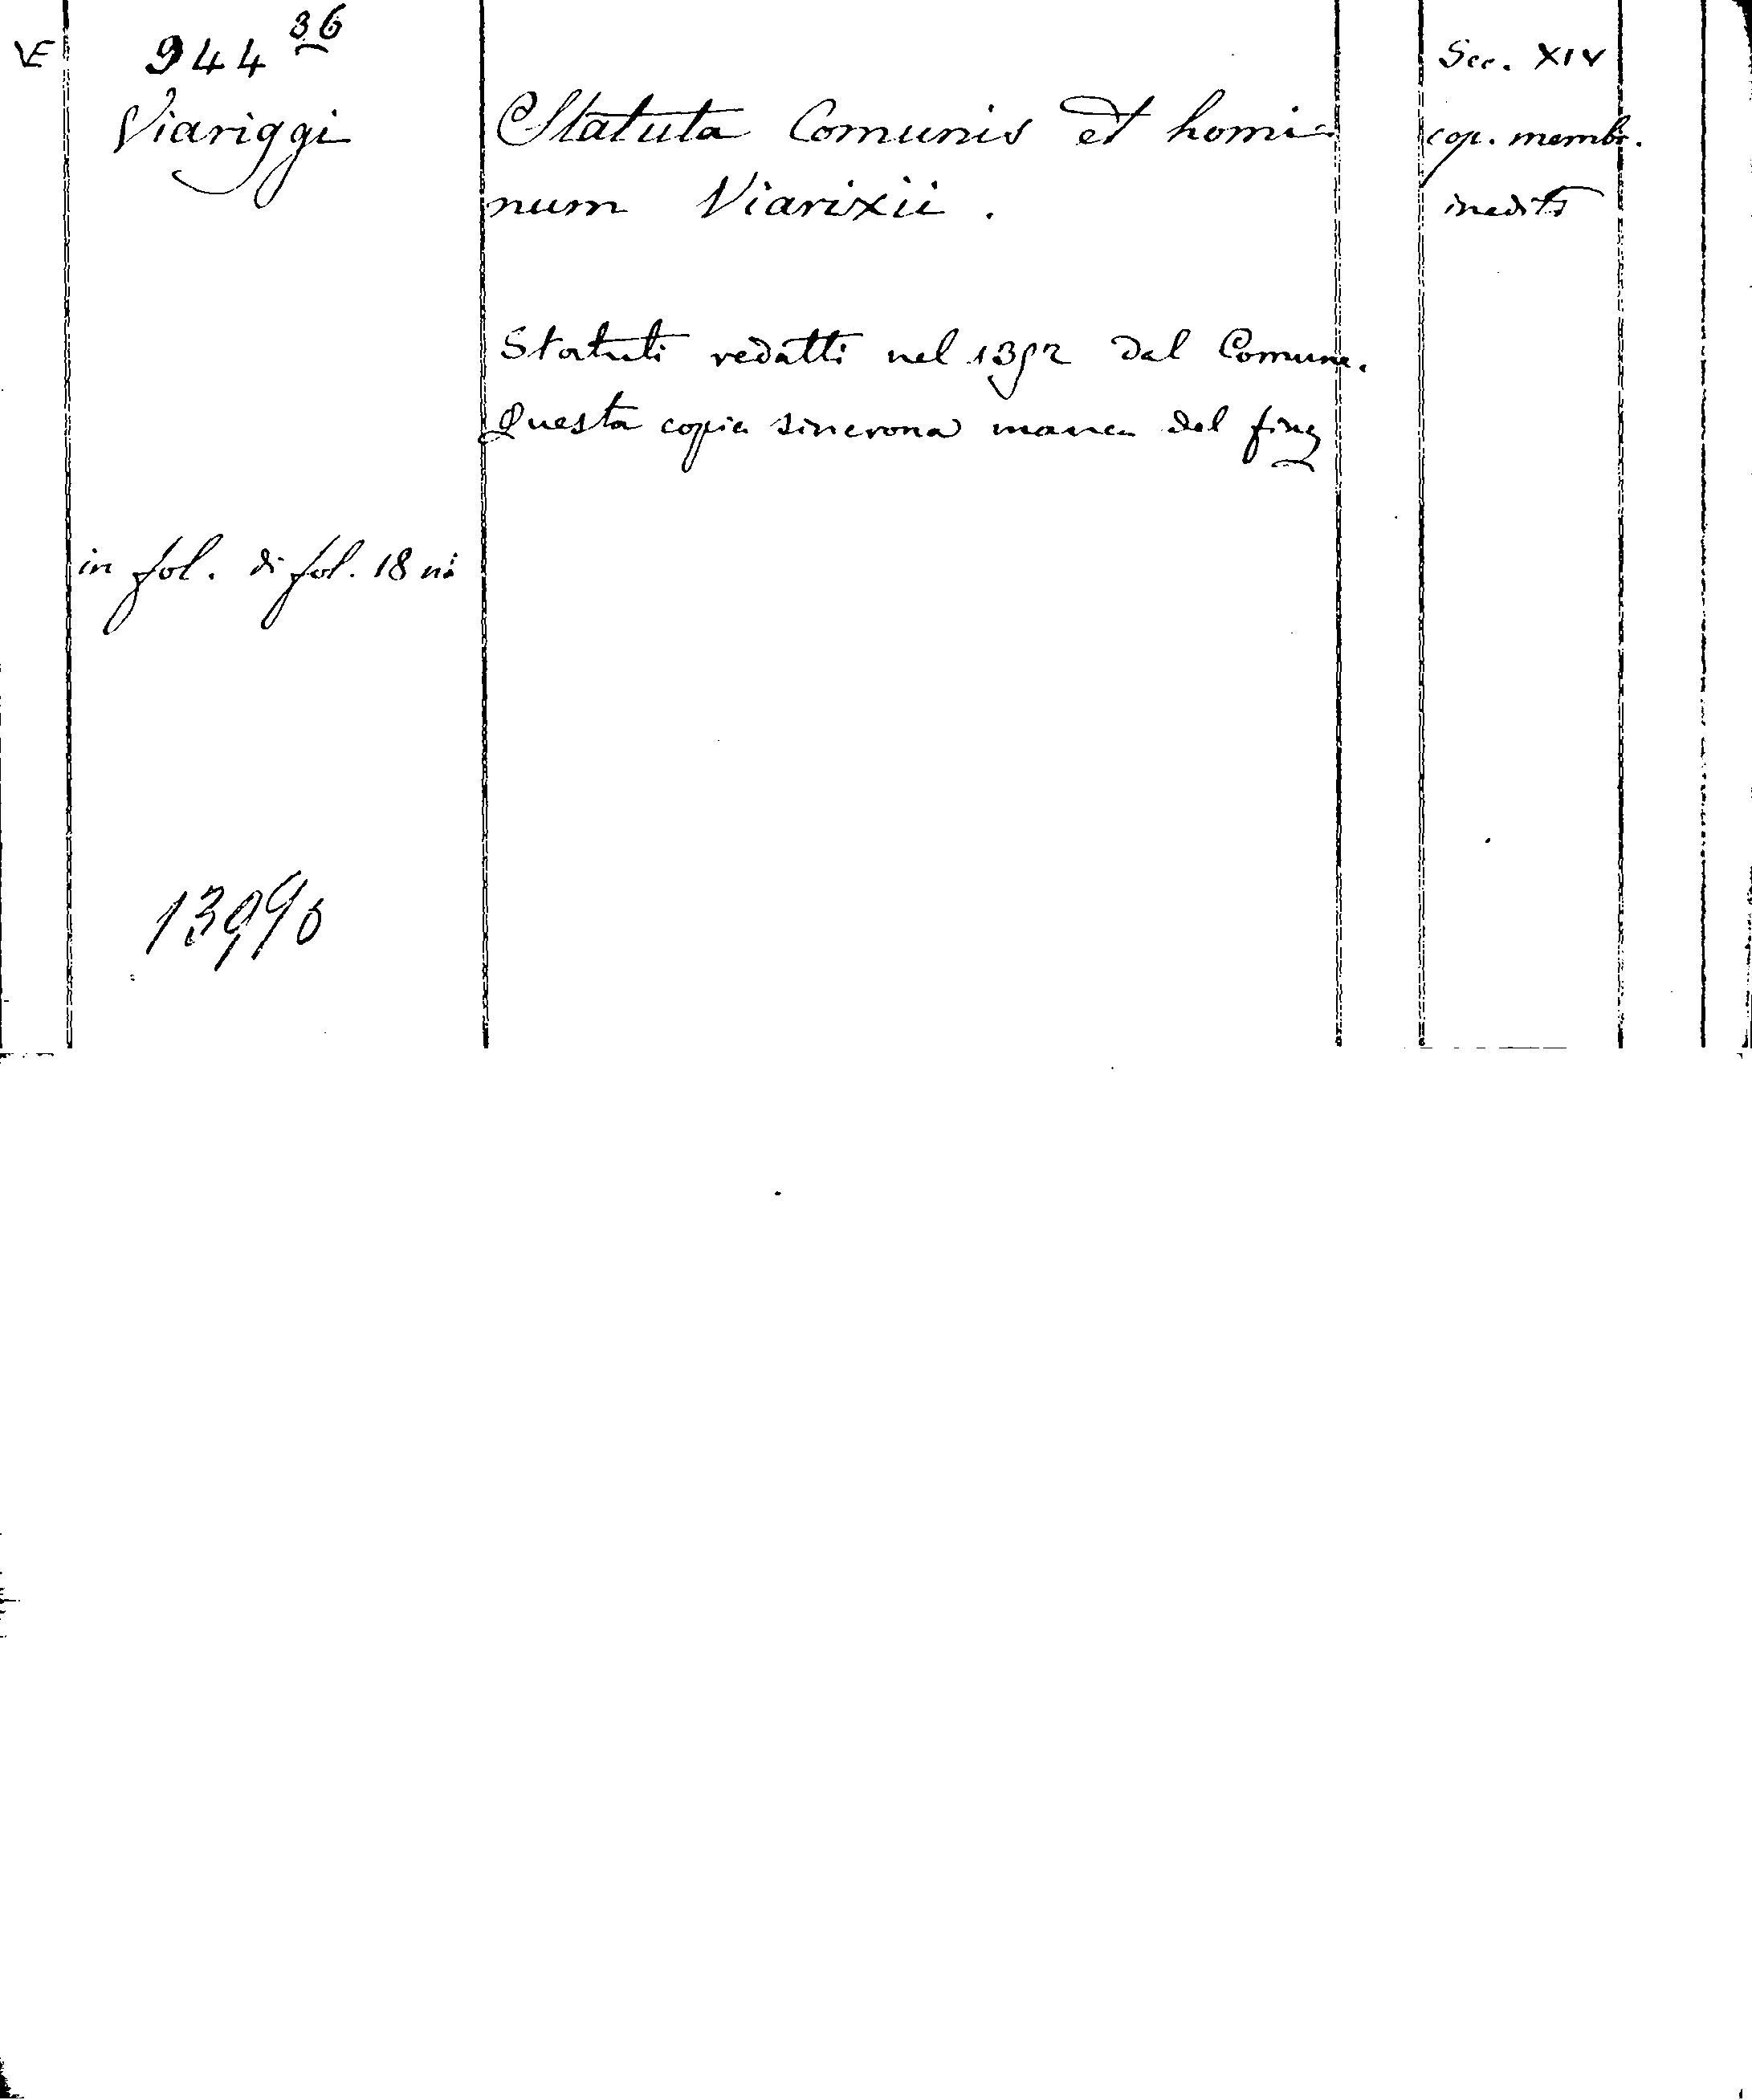 VE
944 36
Sec. XIV
Viariggi
Statuta Comunis et homi-
cop. membr.
num Viarixii.
inedito
Statuti redatti nel 1392 dal Comune.
Questa copia sincrona manca del fine
in fol. di fol. 18 ni
13990